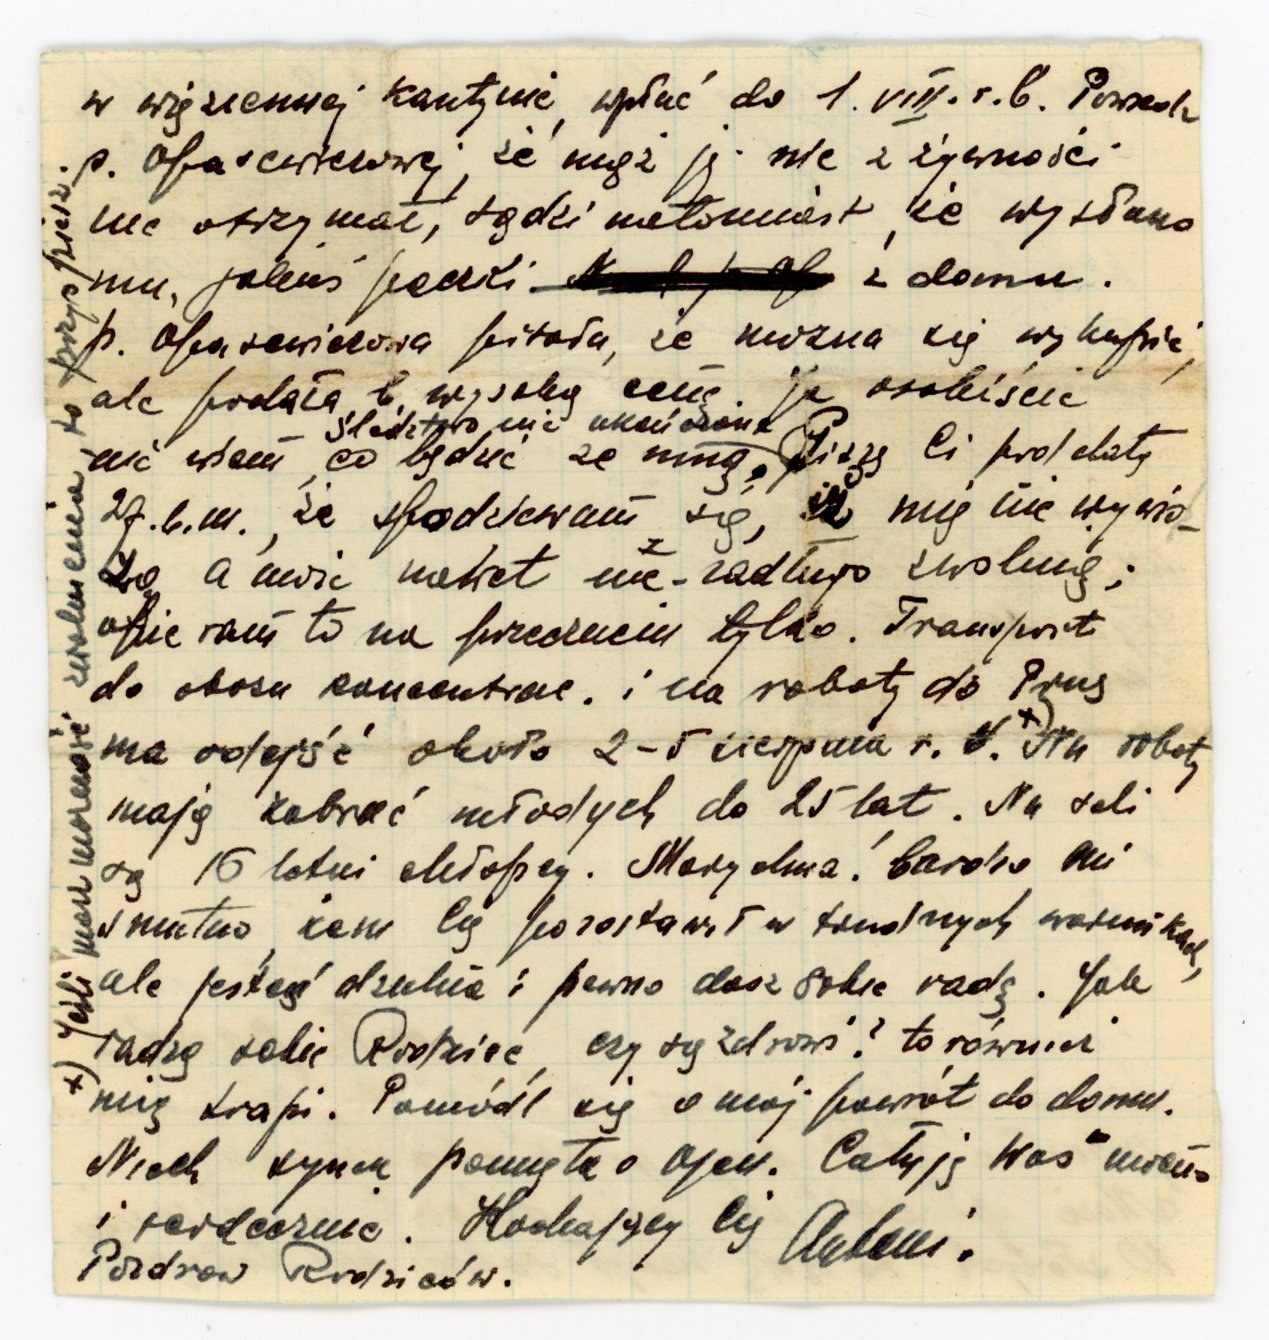 w więziennej kantynie, wpłać do 1.VIII. r.b. Powiedz
p. Opasewiczowej, że mąż jej nic z żywności
nie otrzymał, sądzi natomiast, że wysłano
mu, jakieś paczki z domu.
p. Opasewiczowa pisała, że można się wykupić,
ale podała b. wysoką cenę. Ja osobiście
śledztwo nie ukończone
nie wiem co będzie ze mną. Piszę Ci pod datą
27.b.m., że spodziewam się, iż mię nie wywio-
zą a może nawet nie-zadługo zwolnią;
opieram to na przeczuciu tylko. Transport
do obozu koncentrac. i na roboty do Prus
ma odejść około 2-5 sierpnia r. b. x) Na roboty
mają zabrać młodych do 25 lat. Na sali
są 16 letni chłopcy. Marychna! bardzo mi
smutno, żem Cię pozostawił w trudnych warunkach,
ale jesteś dzielna i pewno dasz sobie radę. Jak
radzą sobie Rodzice, czy są zdrowi? to również
mię trapi. Pomódl się o mój powrót do domu.
Niech synek pamięta o Ojcu. Całuję Was mocno
i serdecznie. Kochający Cię Antoni.
Pozdrow Rodziców.
x) Jeśli masz możność zwolnienia, to przyspiesz.